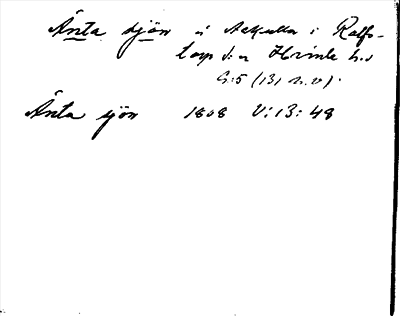 Änta sjön å Aekulla i Rolfs-
torp s:n Himle h:d
G:5 (131 n.v).
Änta sjön 1808 V:13:48